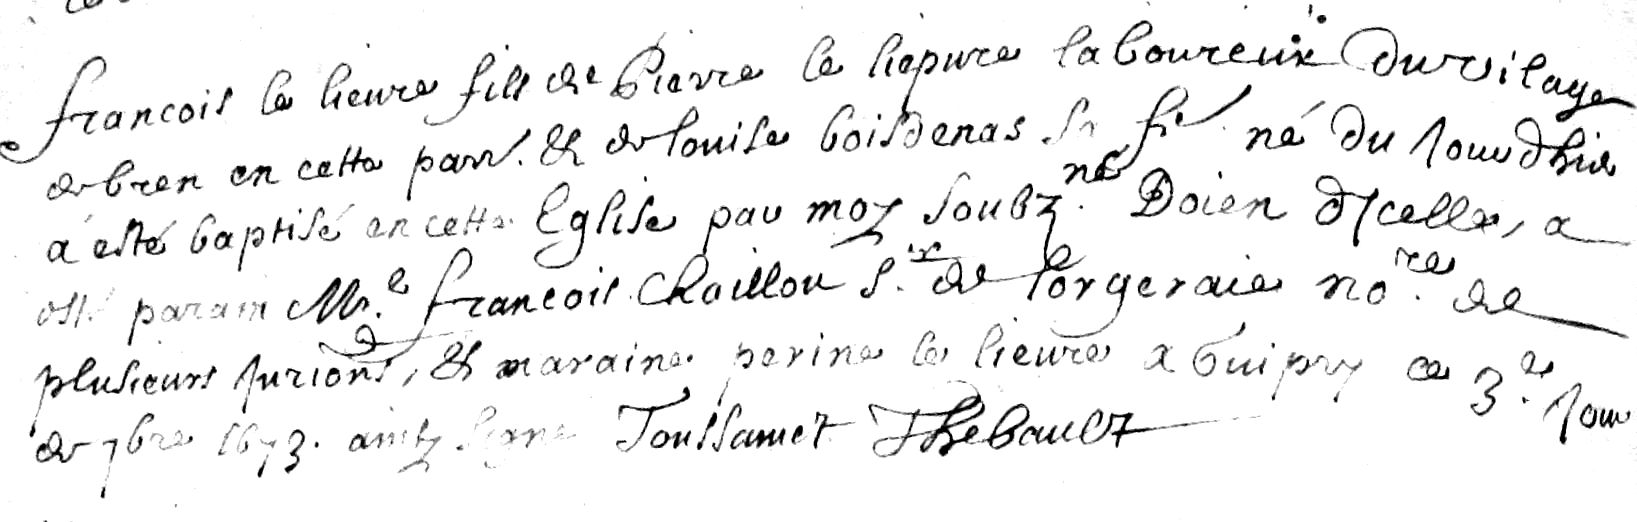 francois le lieure fils de Pierre le liepure laboureux du vilage
de bren en cette parr. & de louise boisdenas sa fe né du jourdhie
a esté baptisé en cette Eglise par moy soubz.né Doien dycelle, a
esté parain Mr.e francois Chaillou S.ir de lorgeraie no.re de
plusieurs jurions, & maraine perine le lieure a Guipry ce 3.e jour
de 7bre 1673. ainsy signé Toussainct Thebault